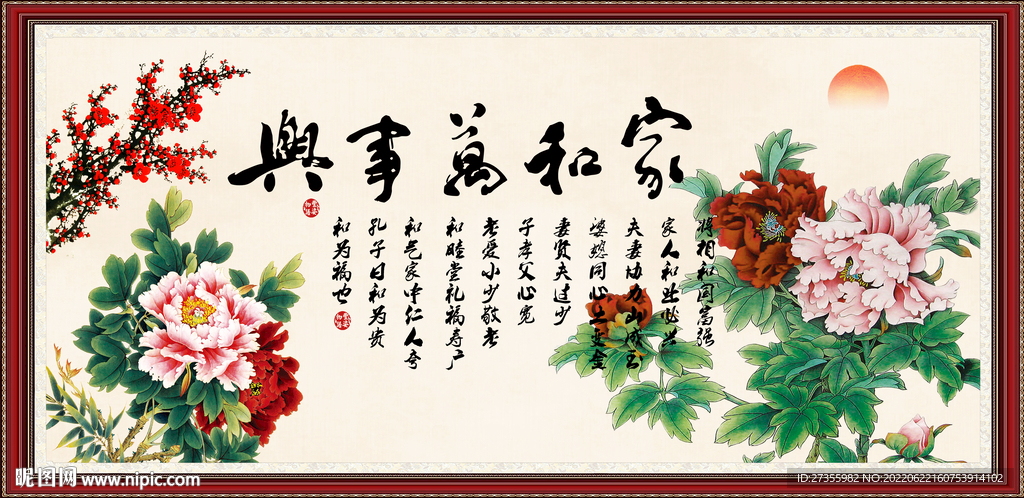 家和萬事興
将相和国富强
家人和业必兴
夫妻协力山成玉
婆媳同心土变金
妻贤夫过少
子孝父心宽
老爱小少敬老
和睦堂礼福寿广
和气家中仁人奇
孔子曰和为贵
和为福也
昵图网 www.nipic.com
ID:27355982 NO:20220622160753914102